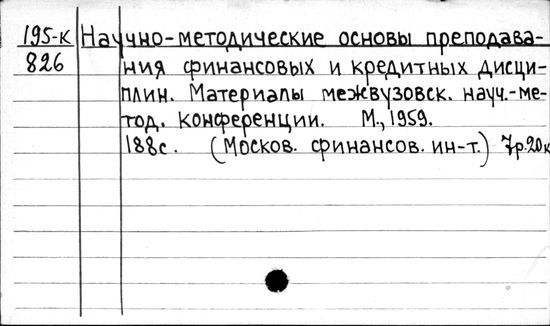 195-к Научно-методические основы преподава-
826 ния финансовых и кредитных дисци-
плин. Материалы межвузовск. науч.-ме-
тод. конференции. М., 1959.
188с. (Москов. финансов. ин-т.) 7р.20к